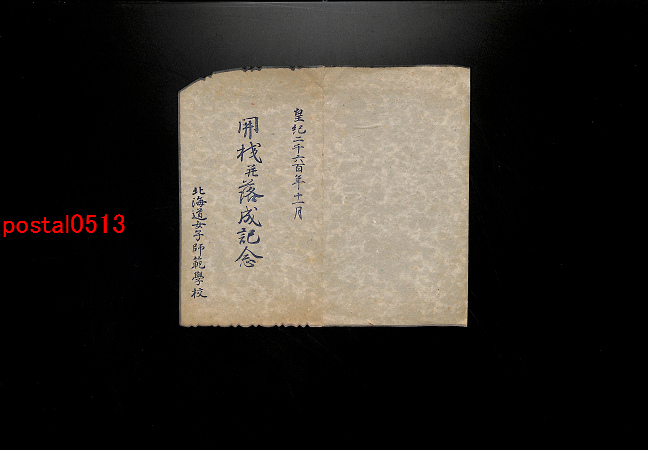 皇紀二千六百年十一月
開校並落成記念
北海道女子師範學校
postal0513